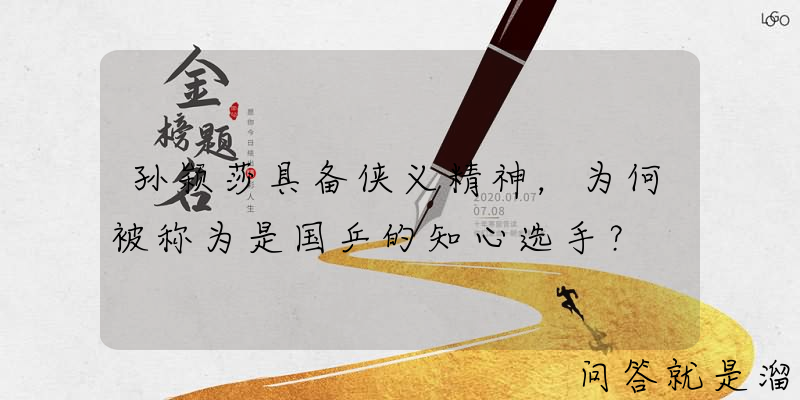 LOGO
金榜题名
孙颖莎具备侠义精神，为何
被称为是国乒的知心选手？
2020.07.07
07.08
问答就是溜